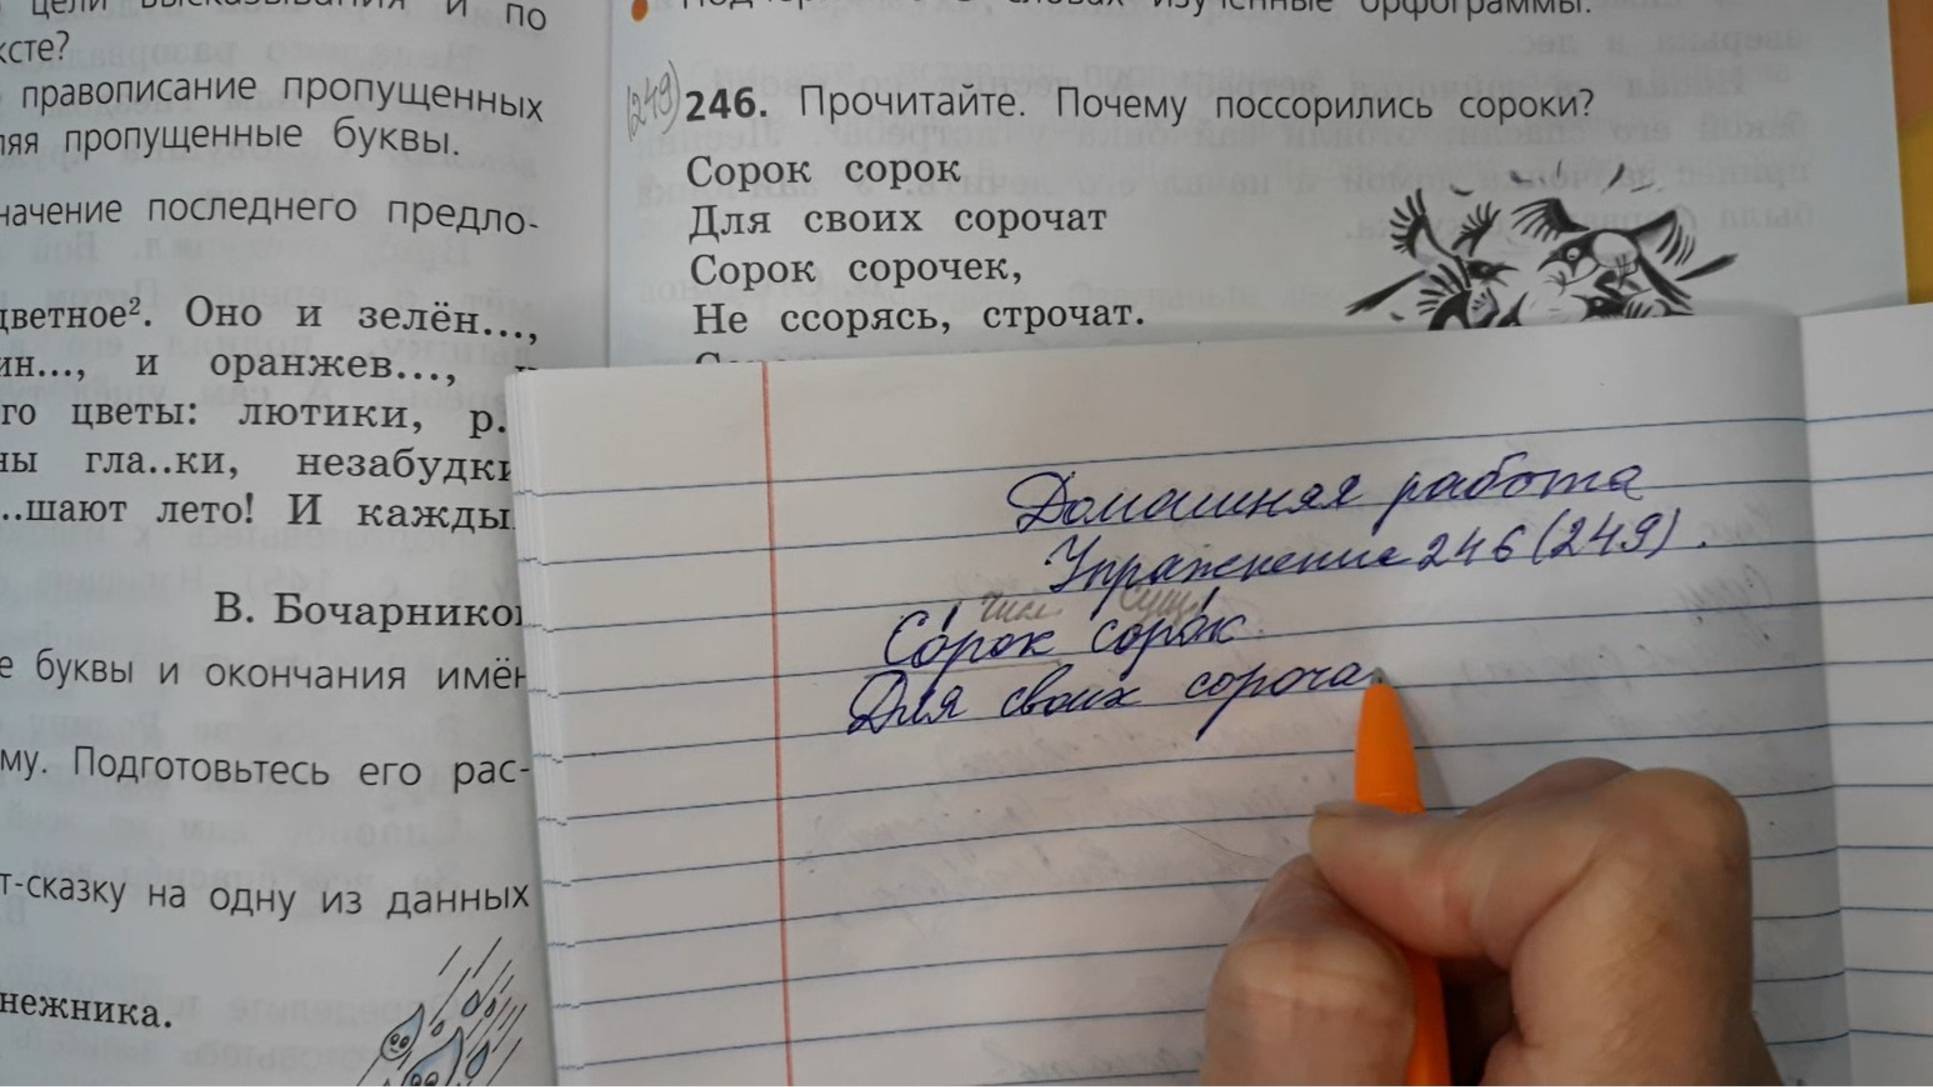 цели высказывания и по
ксте?
правописание пропущенных
ляя пропущенные буквы.
начение последнего предло-
цветное². Оно и зелён...,
ин..., и оранжев...,
го цветы: лютики, р.
ны гла..ки, незабудки
..шают лето! И кажды
В. Бочарников
е буквы и окончания имён
му. Подготовьтесь его рас-
т-сказку на одну из данных
нежника.
словах изученные орфограммы.
(249) 246. Прочитайте. Почему поссорились сороки?
Сорок сорок
Для своих сорочат
Сорок сорочек,
Не ссорясь, строчат.
Домашняя работа
Упражнение 246 (249).
числ. сущ.
Со́рок соро́к
Для своих сороча